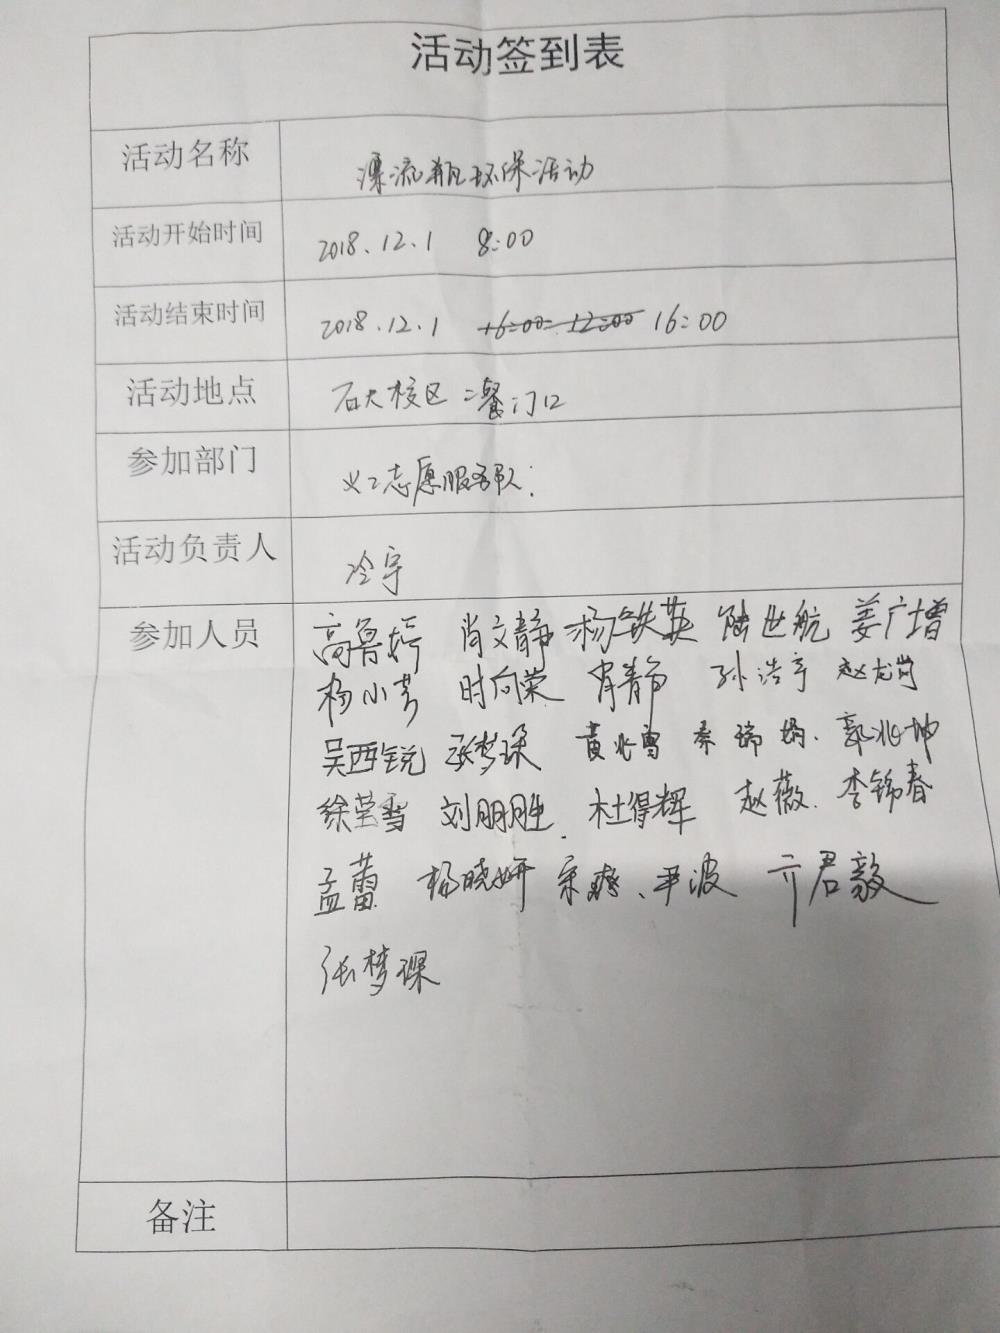 活动签到表
活动名称 漂流瓶环保活动
活动开始时间 2018.12.1 8:00
活动结束时间 2018.12.1 16:00 12:00 16:00
活动地点 石大校区二餐门口
参加部门 义工志愿服务队.
活动负责人 冷宇
参加人员 高鲁婷 肖文静 杨铁英 陆世航 姜广增
杨小芳 时向荣 肖静 孙浩宇 赵龙岗
吴西锐 张梦琛 黄兆曹 秦瑞娟. 郭兆坤
徐莹雪 刘朋胜. 杜得辉 赵薇. 李锦春
孟蕾 杨晓妍 宋爽、尹波 亓君毅
张梦琛
备注